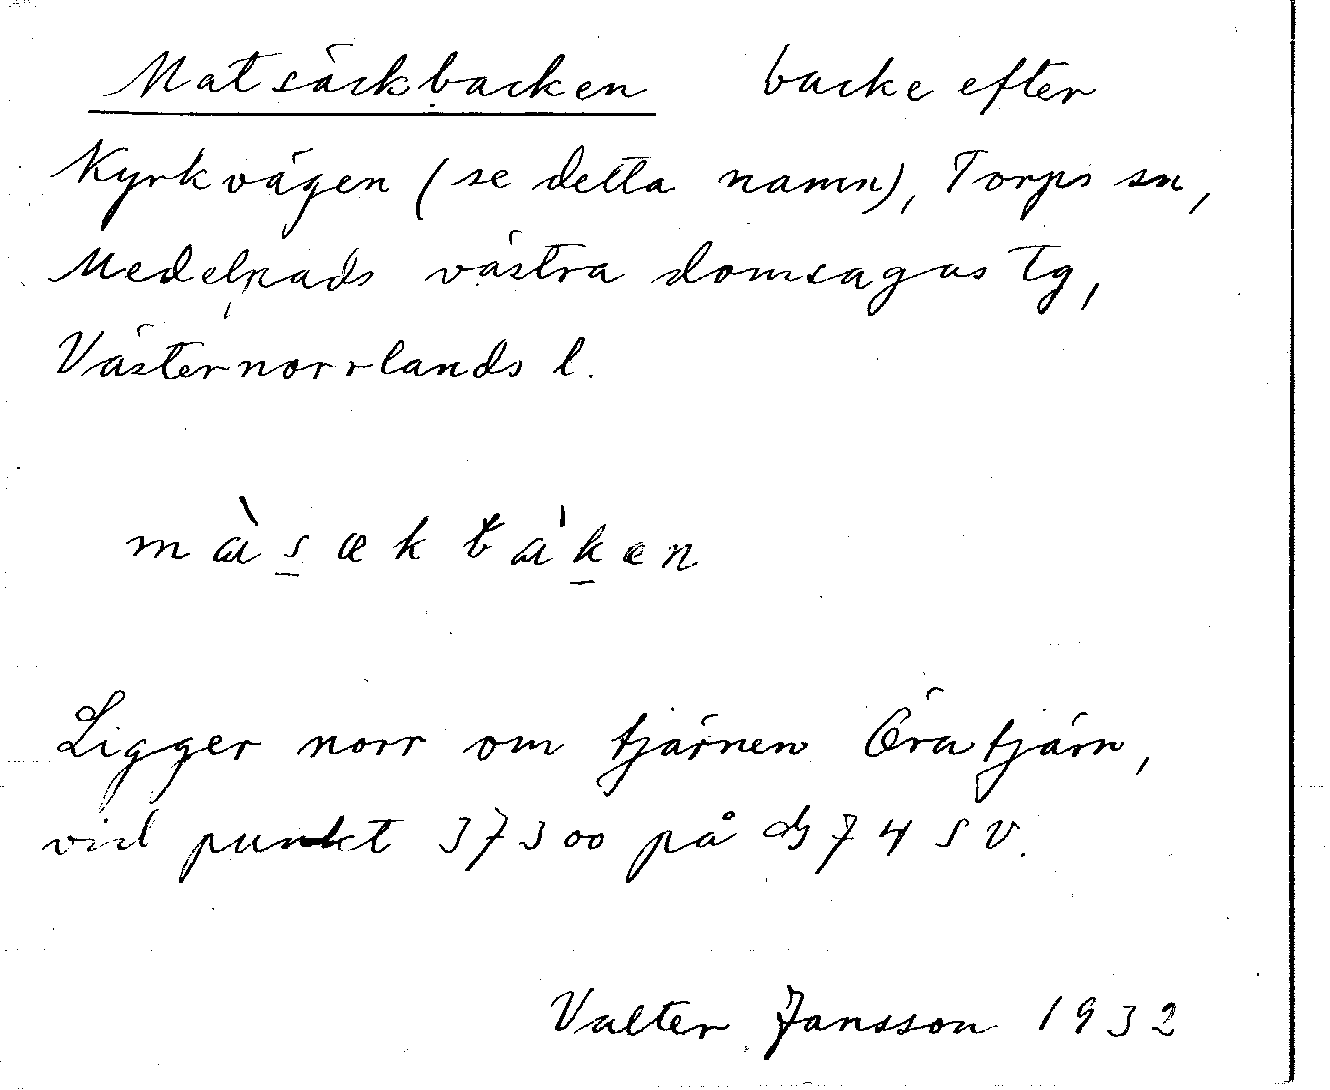 Matsäckbacken backe efter
Kyrkvägen (se detta namn), Torps sn,
Medelpads västra domsagas tg,
Västernorrlands l.
màsækbak̍en
Ligger norr om tjärnen Öratjärn,
vid punkt 37300 på 74 SV.
Valter Jansson 1932